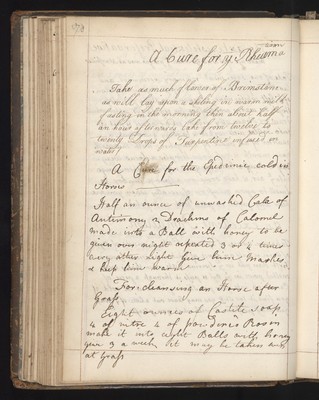 A Cure for ye Rheuma
tism
Take as much flower of Brimstone
as will lay upon a shiling in warm milk
fasting in the morning then about half
an hour afterwards take from twelve to
twenty Drops of Turpentine infused in
water
A Cure for the Epedimic cold in
Horses
Half an ounce of unwashed Calx of
Antimony 2 Drachms of Calomel
made into a Ball with honey to be
given over night repeated 3 or 4 times
every other Night Give him Mashes
& keep him warm
For cleansing an Horse after
Grass
Eight ounces of Castile soap
4 of nitre 4 of Rosin
make it into eight Balls with honey
give 3 a week it may be taken
at Grass